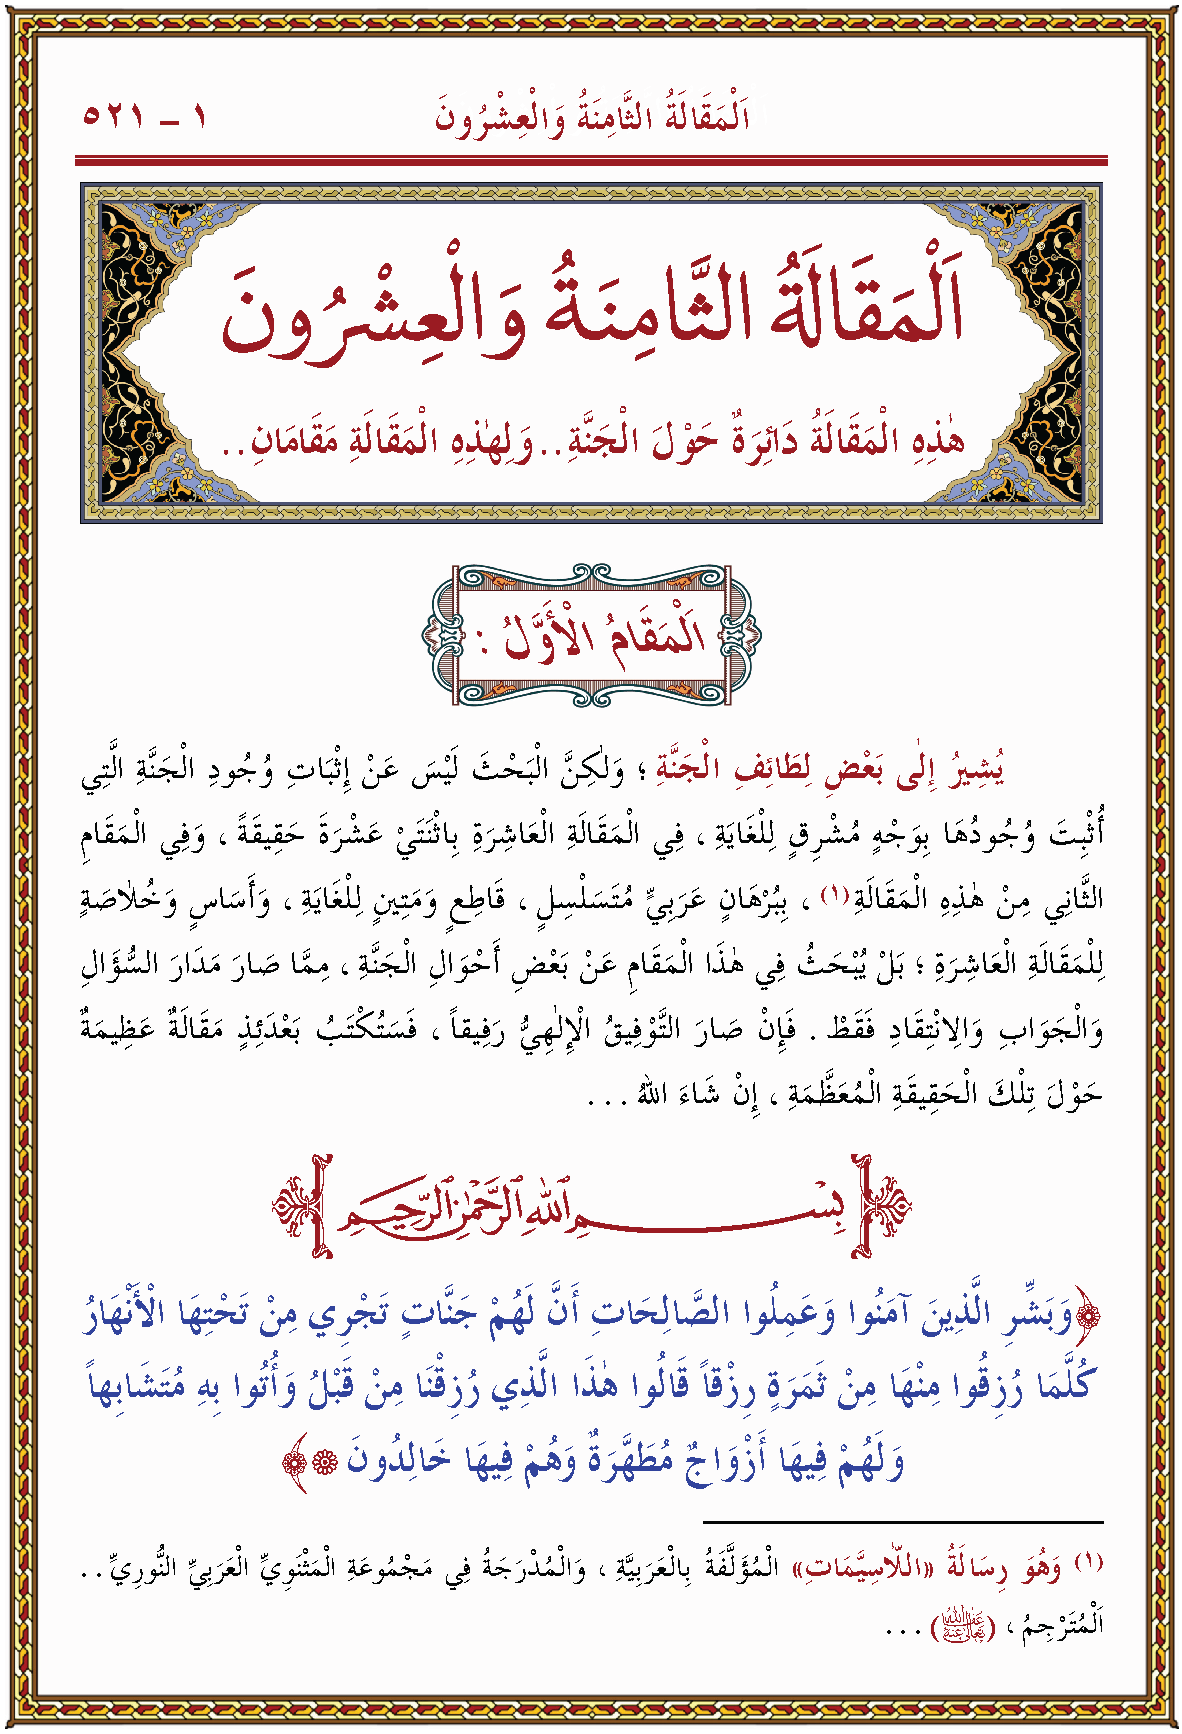 اَلْمَقَالَةُ الثَّامِنَةُ وَالْعِشْرُونَ
١ – ٥٢١
اَلْمَقَالَةُ الثَّامِنَةُ وَالْعِشْرُونَ
هٰذِهِ الْمَقَالَةُ دَائِرَةٌ حَوْلَ الْجَنَّةِ.. وَلِهٰذِهِ الْمَقَالَةِ مَقَامَانِ..
اَلْمَقَامُ الْأَوَّلُ :
يُشِيرُ إِلٰى بَعْضِ لِطَائِفِ الْجَنَّةِ ؛ وَلٰكِنَّ الْبَحْثَ لَيْسَ عَنْ إِثْبَاتِ وُجُودِ الْجَنَّةِ الَّتِي
أُثْبِتَ وُجُودُهَا بِوَجْهٍ مُشْرِقٍ لِلْغَايَةِ ، فِي الْمَقَالَةِ الْعَاشِرَةِ بِاثْنَتَيْ عَشْرَةَ حَقِيقَةً ، وَفِي الْمَقَامِ
الثَّانِي مِنْ هٰذِهِ الْمَقَالَةِ(١) ، بِبُرْهَانٍ عَرَبِيٍّ مُتَسَلْسِلٍ ، قَاطِعٍ وَمَتِينٍ لِلْغَايَةِ ، وَأَسَاسٍ وَخُلَاصَةٍ
لِلْمَقَالَةِ الْعَاشِرَةِ ؛ بَلْ يُبْحَثُ فِي هٰذَا الْمَقَامِ عَنْ بَعْضِ أَحْوَالِ الْجَنَّةِ ، مِمَّا صَارَ مَدَارَ السُّؤَالِ
وَالْجَوَابِ وَالِانْتِقَادِ فَقَطْ . فَإِنْ صَارَ التَّوْفِيقُ الْإِلٰهِيُّ رَفِيقاً ، فَسَتُكْتَبُ بَعْدَئِذٍ مَقَالَةٌ عَظِيمَةٌ
حَوْلَ تِلْكَ الْحَقِيقَةِ الْمُعَظَّمَةِ ، إِنْ شَاءَ اللّٰهُ . . .
بِسْمِ اللّٰهِ الرَّحْمٰنِ الرَّحِيمِ
﴿وَبَشِّرِ الَّذِينَ آمَنُوا وَعَمِلُوا الصَّالِحَاتِ أَنَّ لَهُمْ جَنَّاتٍ تَجْرِي مِنْ تَحْتِهَا الْأَنْهَارُ
كُلَّمَا رُزِقُوا مِنْهَا مِنْ ثَمَرَةٍ رِزْقاً قَالُوا هٰذَا الَّذِي رُزِقْنَا مِنْ قَبْلُ وَأُتُوا بِهِ مُتَشَابِهاً
وَلَهُمْ فِيهَا أَزْوَاجٌ مُطَهَّرَةٌ وَهُمْ فِيهَا خَالِدُونَ ۞﴾
(١) وَهُوَ رِسَالَةُ «اللَّاسِيَّمَاتِ» الْمُؤَلَّفَةُ بِالْعَرَبِيَّةِ ، وَالْمُدْرَجَةُ فِي مَجْمُوعَةِ الْمَثْنَوِيِّ الْعَرَبِيِّ النُّورِيِّ . .
اَلْمُتَرْجِمُ ، (عفا الله تعالى عنه) . . .